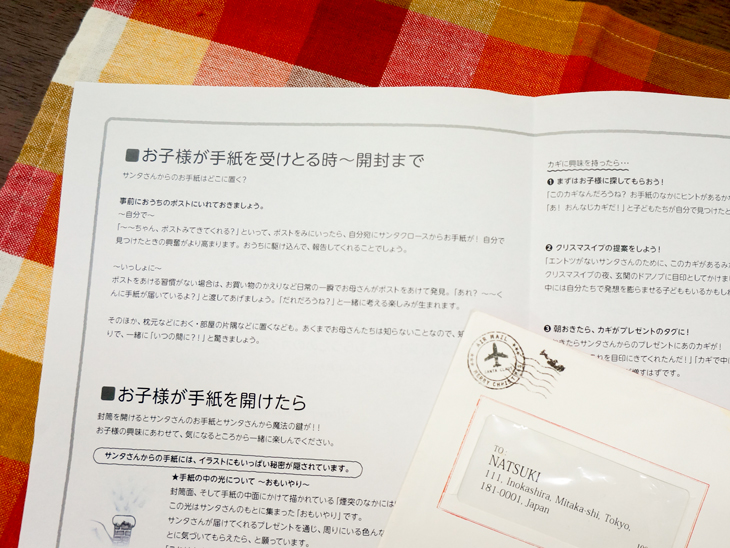 ■お子様が手紙を受けとる時～開封まで
サンタさんからのお手紙はどこに置く?
事前におうちのポストにいれておきましょう。
～自分で～
「～～ちゃん、ポストみてきてくれる?」といって、ポストをみにいったら、自分宛にサンタクロースからお手紙が! 自分で
見つけたときの興奮がより高まります。おうちに駆け込んで、報告してくれることでしょう。
～いっしょに～
ポストをあける習慣がない場合は、お買い物のかえりなど日常の一瞬でお母さんがポストをあけて発見。「あれ? ～～く
んに手紙が届いているよ?」と渡してあげましょう。「だれだろうね?」と一緒に考える楽しみが生まれます。
そのほか、枕元などにおく・部屋の片隅などに置くなども。あくまでお母さんたちは知らないことなので、
りで、一緒に「いつの間に?!」と驚きましょう。
■お子様が手紙を開けたら
封筒を開けるとサンタさんのお手紙とサンタさんから魔法の鍵が!!
お子様の興味にあわせて、気になるところから一緒に楽しんでください。
サンタさんからの手紙には、イラストにもいっぱい秘密が隠されています。
★手紙の中の光について ～おもいやり～
封筒面、そして手紙の中面にかけて描かれている「煙突のなかには
この光はサンタさんのもとに集まった「おもいやり」です。
サンタさんが届けてくれるプレゼントを通じ、周りにいる色んな
とに気づいてもらえたら、と願っています。
カギに興味を持ったら…
❶ まずはお子様に探してもらおう!
「このカギなんだろうね? お手紙のなかにヒントがあるか
「あ! おんなじカギだ!」と子どもたちが自分で見つけたと
❷ クリスマスイブの提案をしよう!
「エントツがないサンタさんのために、このカギがあるみ
クリスマスイブの夜、玄関のドアノブに目印としてかけま
中には自分たちで発想を膨らませる子どももいるかもし
❸ 朝おきたら、カギがプレゼントのタグに!
きたらサンタさんからのプレゼントにあのカギが!
れを目印にきてくれたんだ!」「カギで中に
増すはずです。
AIR MAIL
MERRY CHRISTMAS
TO:
NATSUKI
111, Inokashira, Mitaka-shi, Tokyo,
181-0001, Japan